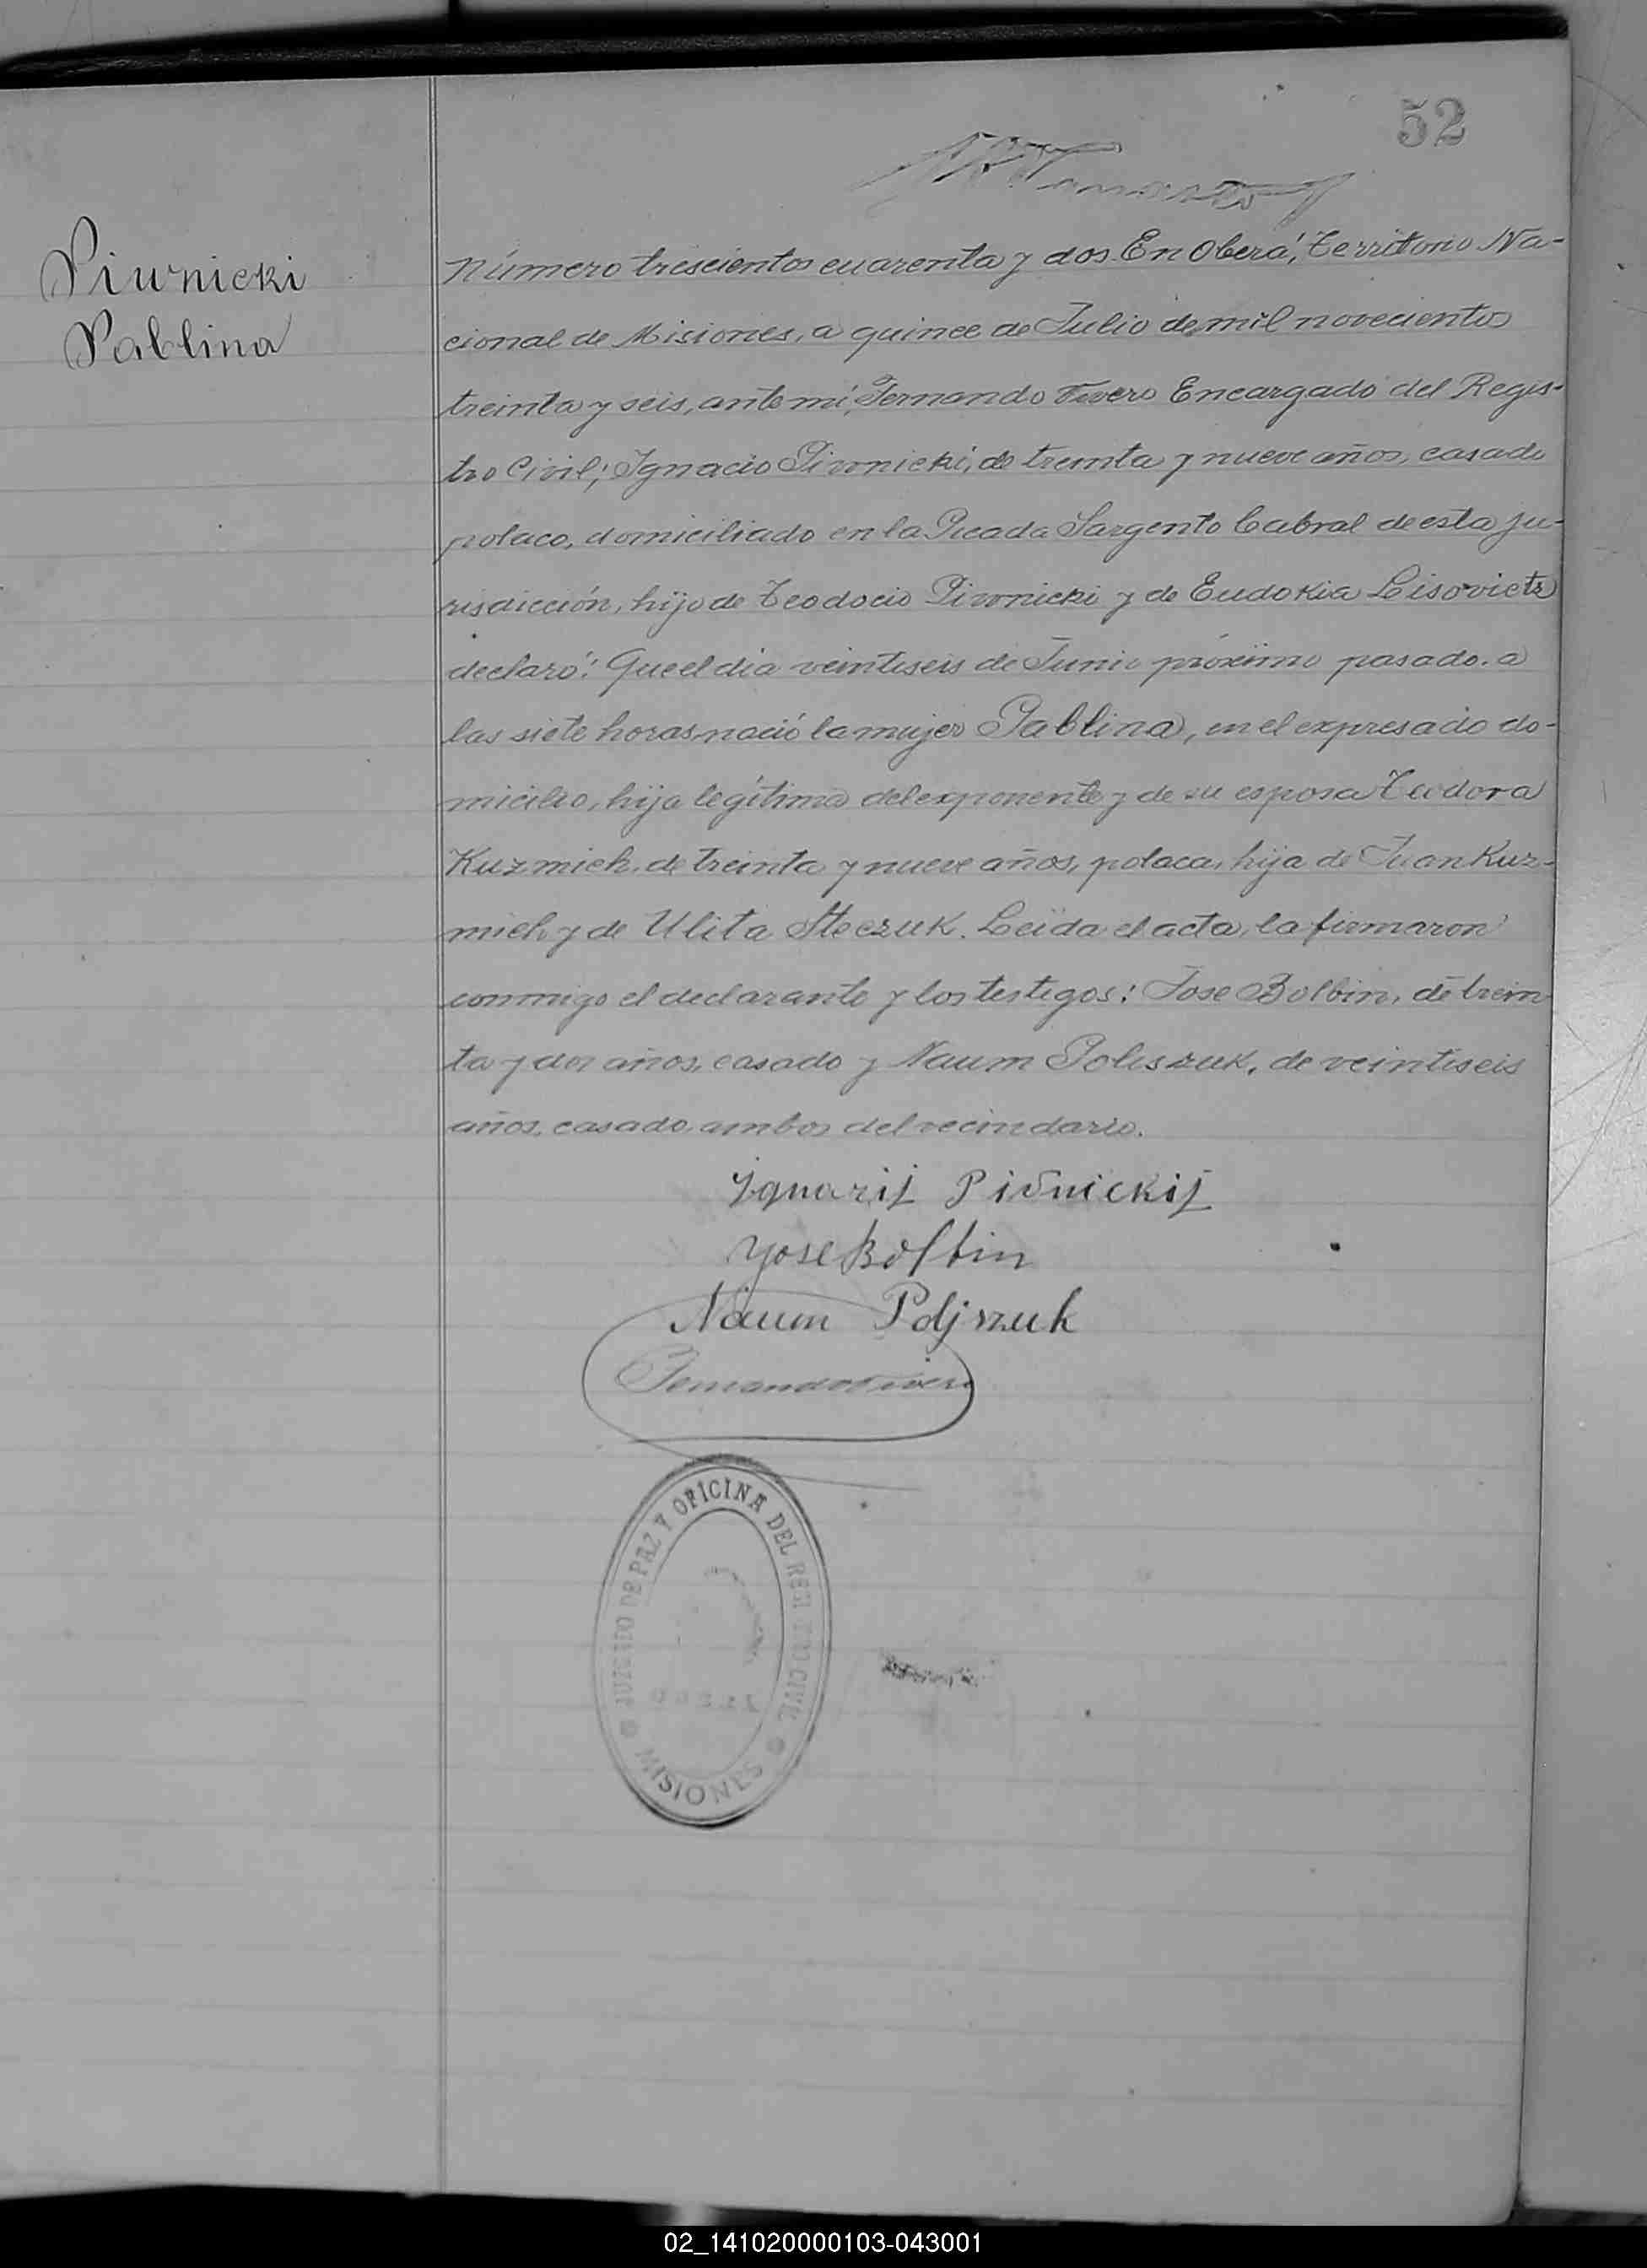 52
Piwnicki
Pablina
Número trescientos cuarenta y dos. En Oberá, Territorio Na-
cional de Misiones, a quince de Julio de mil novecientos
treinta y seis, ante mí, Fernando Vivero Encargado del Regis-
tro Civil; Ignacio Piwnicki, de treinta y nueve años, casado
polaco, domiciliado en la Picada Sargento Cabral de esta ju-
risdicción, hijo de Teodocio Piwnicki y de Eudokia Lisoviets
declaró: Que el día veintiseis de Junio próximo pasado, a
las siete horas nació la mujer Pablina, en el expresado do-
micilio, hija legítima del exponente y de su esposa Teodora
Kuzmich, de treinta y nueve años, polaca, hija de Juan Kuz-
mich y de Ulita Steczuk. Leída el acta, la firmaron
conmigo el declarante y los testigos: Jose Bolbin, de trein
ta y dos años, casado y Naum Poliszuk, de veintiseis
años, casado, ambos del vecindario.
Ignazij Piwnickij
Yose Bolbin
Naum Poljszuk
Fernando Vivero
JUZGADO DE PAZ Y OFICINA DEL REGISTRO CIVIL
MISIONES
02_141020000103-043001